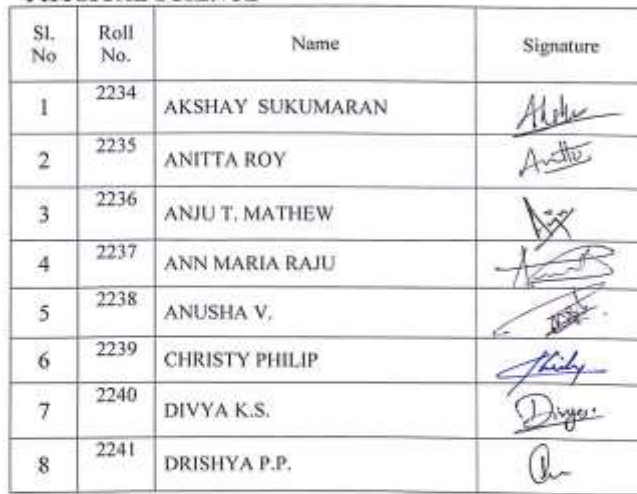 Sl. No Roll No. Name Signature
1 2234 AKSHAY SUKUMARAN
2 2235 ANITTA ROY
3 2236 ANJU T. MATHEW
4 2237 ANN MARIA RAJU
5 2238 ANUSHA V.
6 2239 CHRISTY PHILIP
7 2240 DIVYA K.S. Divya
8 2241 DRISHYA P.P.